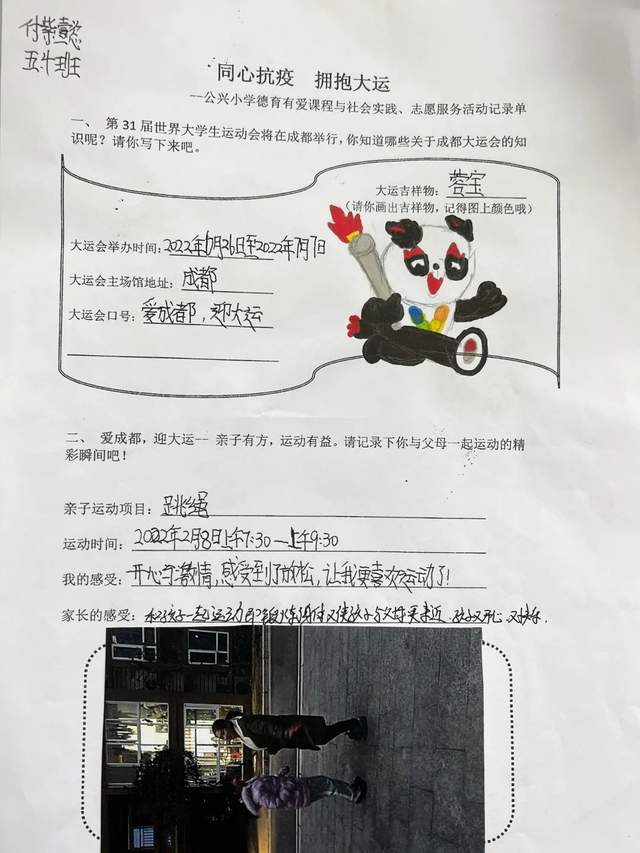 付紫壹懿
五年4班
同心抗疫 拥抱大运
—公兴小学德育有爱课程与社会实践、志愿服务活动记录单
一、 第 31 届世界大学生运动会将在成都举行，你知道哪些关于成都大运会的知
识呢？请你写下来吧。
大运吉祥物：蓉宝
（请你画出吉祥物，记得图上颜色哦）
大运会举办时间：2022年6月26日至2022年7月7日
大运会主场馆地址：成都
大运会口号：爱成都，迎大运
二、 爱成都，迎大运-- 亲子有方，运动有益。请记录下你与父母一起运动的精
彩瞬间吧！
亲子运动项目：跳绳
运动时间：2022年2月8日上午7:30—上午9:30
我的感受：开心于激情，感受到了放松，让我更喜欢运动了！
家长的感受：和孩子一起运动